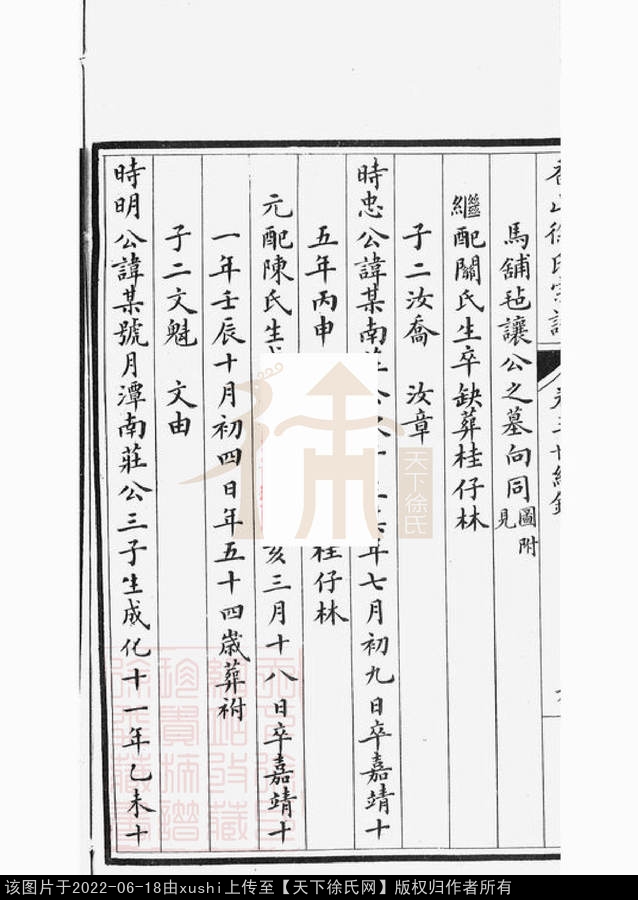 馬舖毡讓公之墓向同圖附見
繼配關氏生卒缺葬桂仔林
子二汝喬 汝章
時忠公諱某南 年七月初九日卒嘉靖十
五年丙申 桂仔林
元配陳氏生 亥三月十八日卒嘉靖十
一年壬辰十月初四日年五十四歲葬祔
子二文魁 文由
時明公諱某號月潭南莊公三子生成化十一年乙未十
天下徐氏
该图片于2022-06-18由xushi上传至【天下徐氏网】版权归作者所有